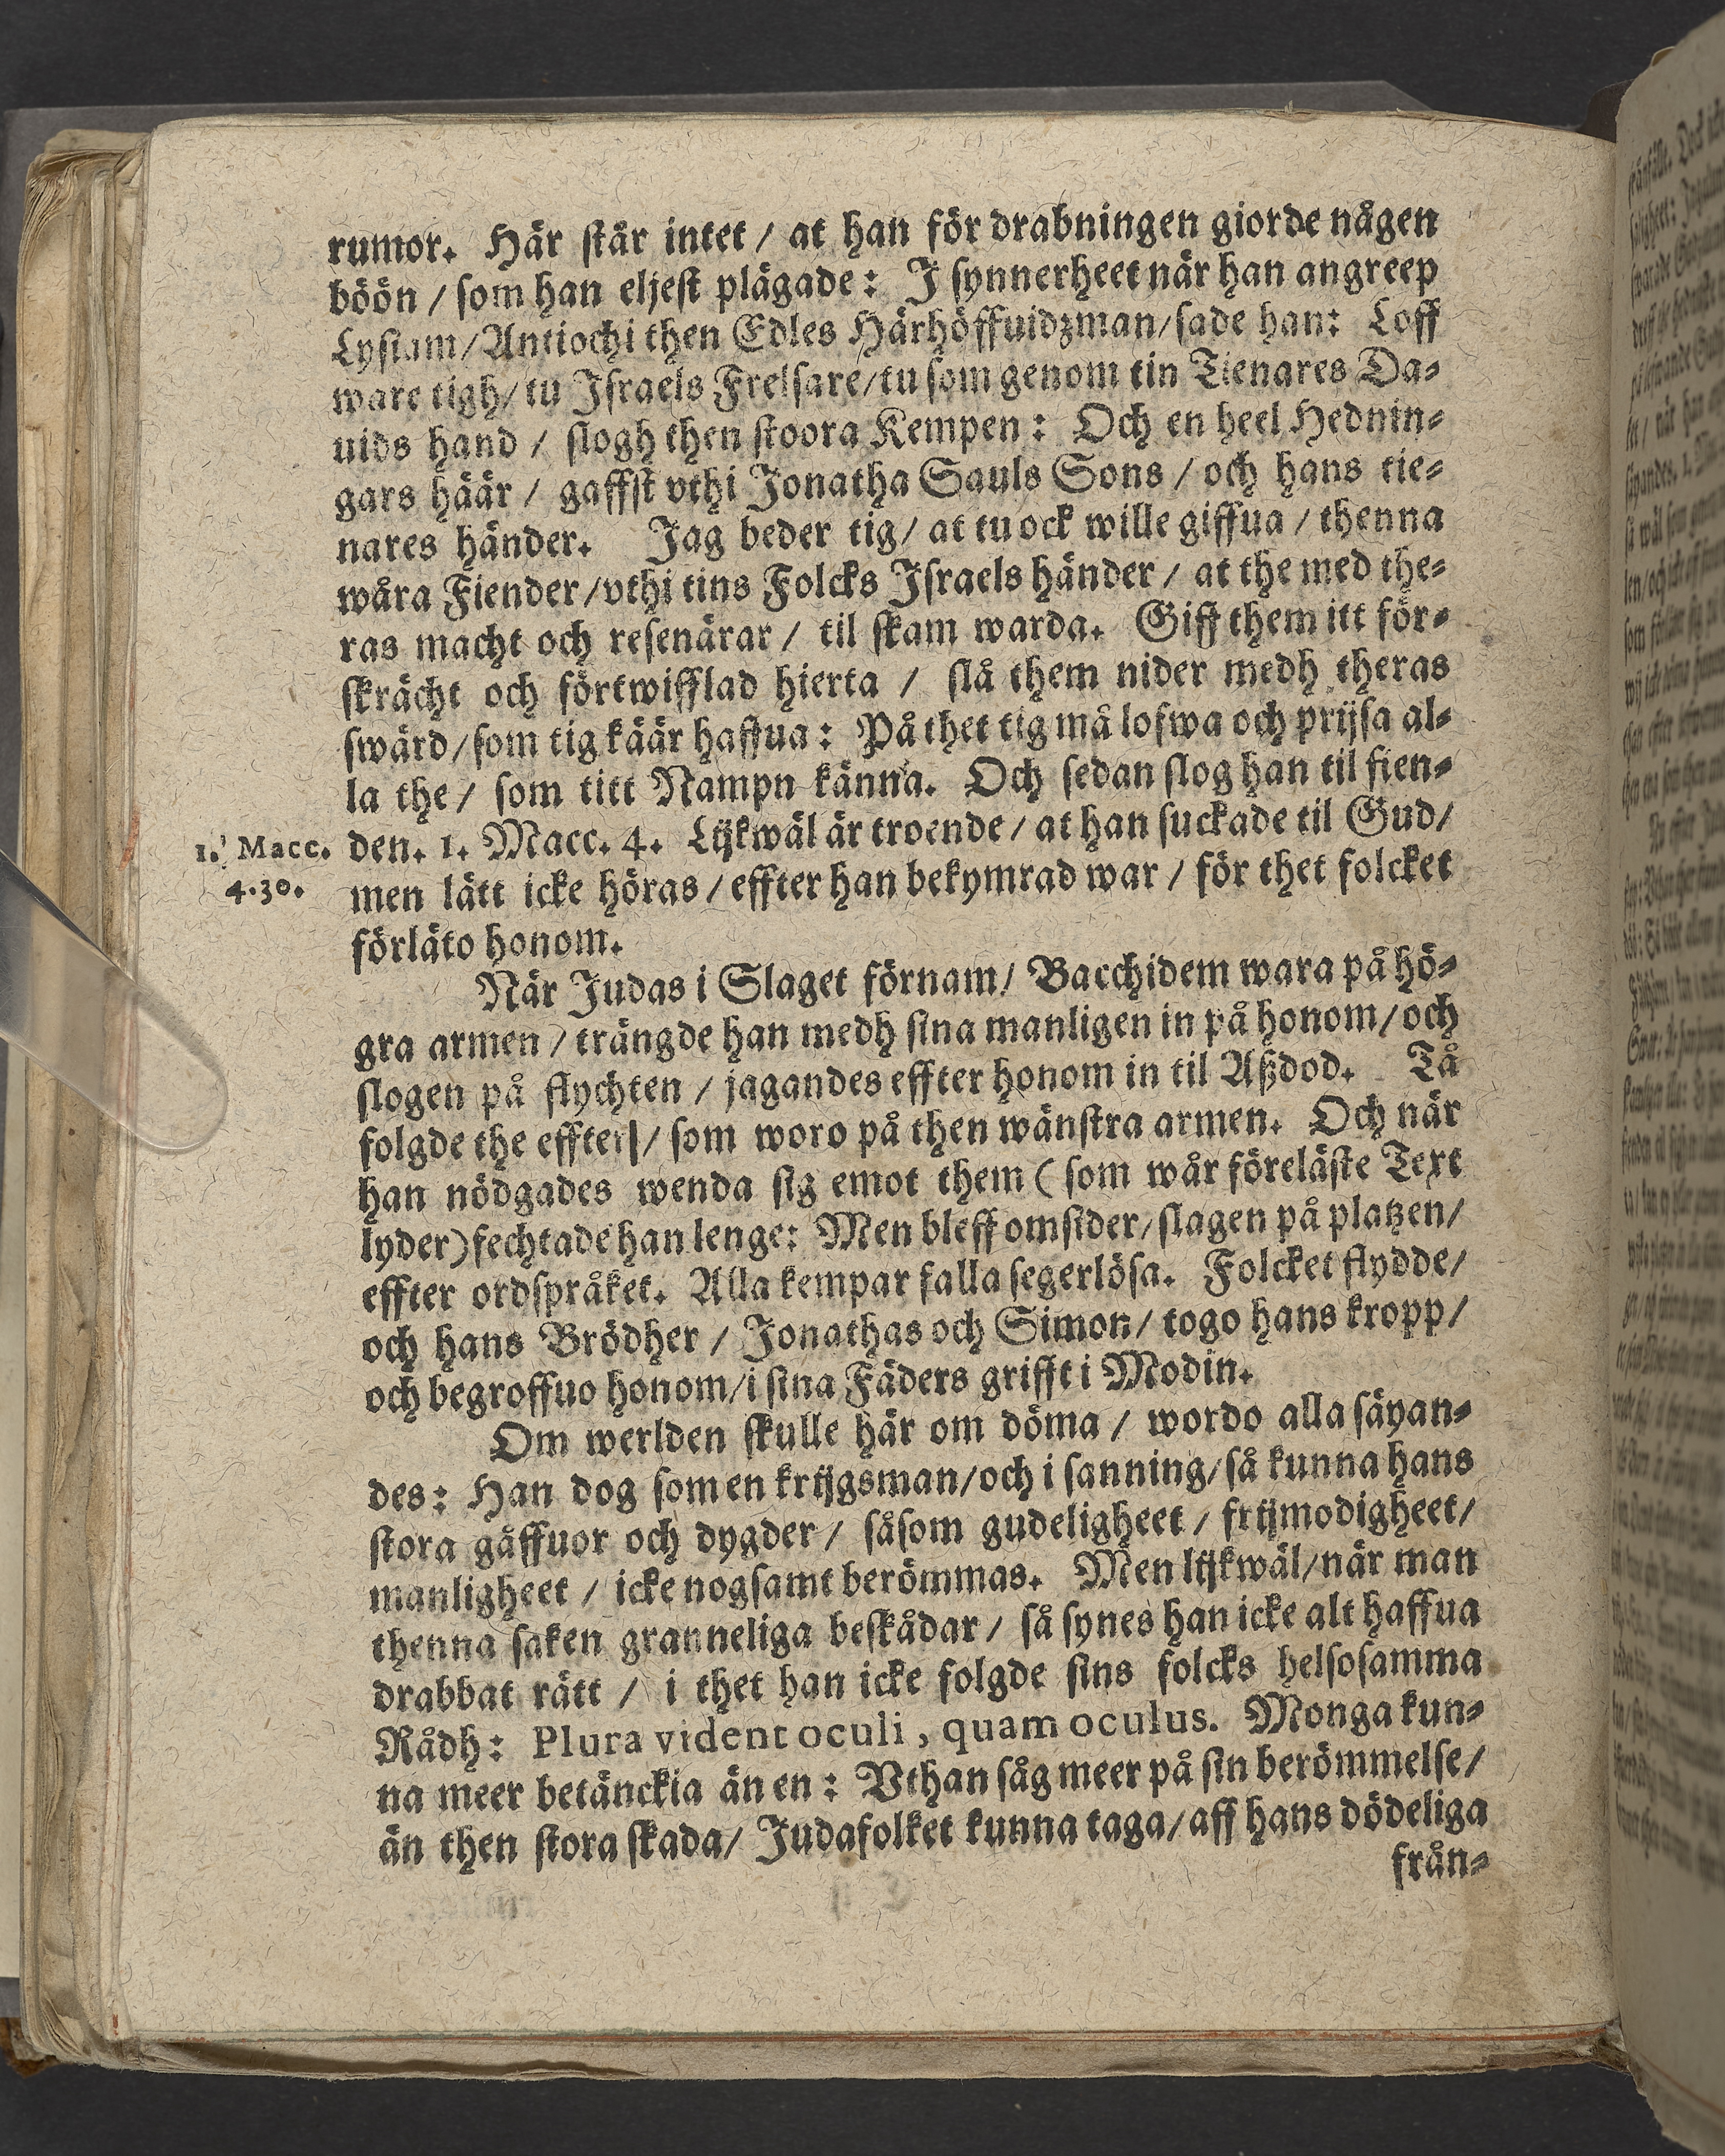 rumor. Här står intet / at han för drabningen giorde någen
böön / som han eljest plägade: J synnerheet när han angreep
Lysiam / Antiochi then Edles Härhöffuidzman / sade han: Loff
ware tigh / tu Jsraels Frelsare / tu som genom tin Tienares Da-
uids hand / slogh then stoora Kempen: Och en heel Hednin-
gars häär / gaffst vthi Jonatha Sauls Sons / och hans tie-
nares händer. Jag beder tig / at tu ock wille giffua / thenna
wåra Fiender / vthi tins Folcks Jsraels händer / at the med the-
ras macht och resenärar / til skam warda. Giff them itt för-
skrächt och förtwifflad hierta / slå them nider medh theras
swärd / som tig käär haffua: På thet tig må lofwa och prijsa al-
la the / som titt Nampn känna. Och sedan slog han til fien-
1. Macc. 4.30.
den. 1. Macc. 4. Lijkwäl är troende / at han suckade til Gud /
men lätt icke höras / effter han bekymrad war / för thet folcket
förläto honom.
När Judas i Slaget förnam / Bacchidem wara på hö-
gra armen / trängde han medh sina manligen in på honom / och
slogen på flychten / jagandes effter honom in til Aßdod. Tå
folgde the effter / som woro på then wänstra armen. Och när
han nödgades wenda sig emot them ( som wår föreläste Text
lyder) fechtade han lenge: Men bleff omsider / slagen på platzen /
effter ordspråket. Alla kempar falla segerlösa. Folcket flydde /
och hans Brödher / Jonathas och Simon / togo hans kropp /
och begroffuo honom / i sina Fäders grifft i Modin.
Om werlden skulle här om döma / wordo alla säyan-
des: Han dog som en krijgsman / och i sanning / så kunna hans
stora gåffuor och dygder / såsom gudeligheet / frijmodigheet /
manligheet / icke nogsamt berömmas. Men lijkwäl / när man
thenna saken granneliga beskådar / så synes han icke alt haffua
drabbat rätt / i thet han icke folgde sins folcks helsosamma
Rådh: Plura vident oculi, quam oculus. Monga kun-
na meer betänckia än en: Vthan såg meer på sin berömmelse /
än then stora skada / Judafolket kunna taga / aff hans dödeliga
från-